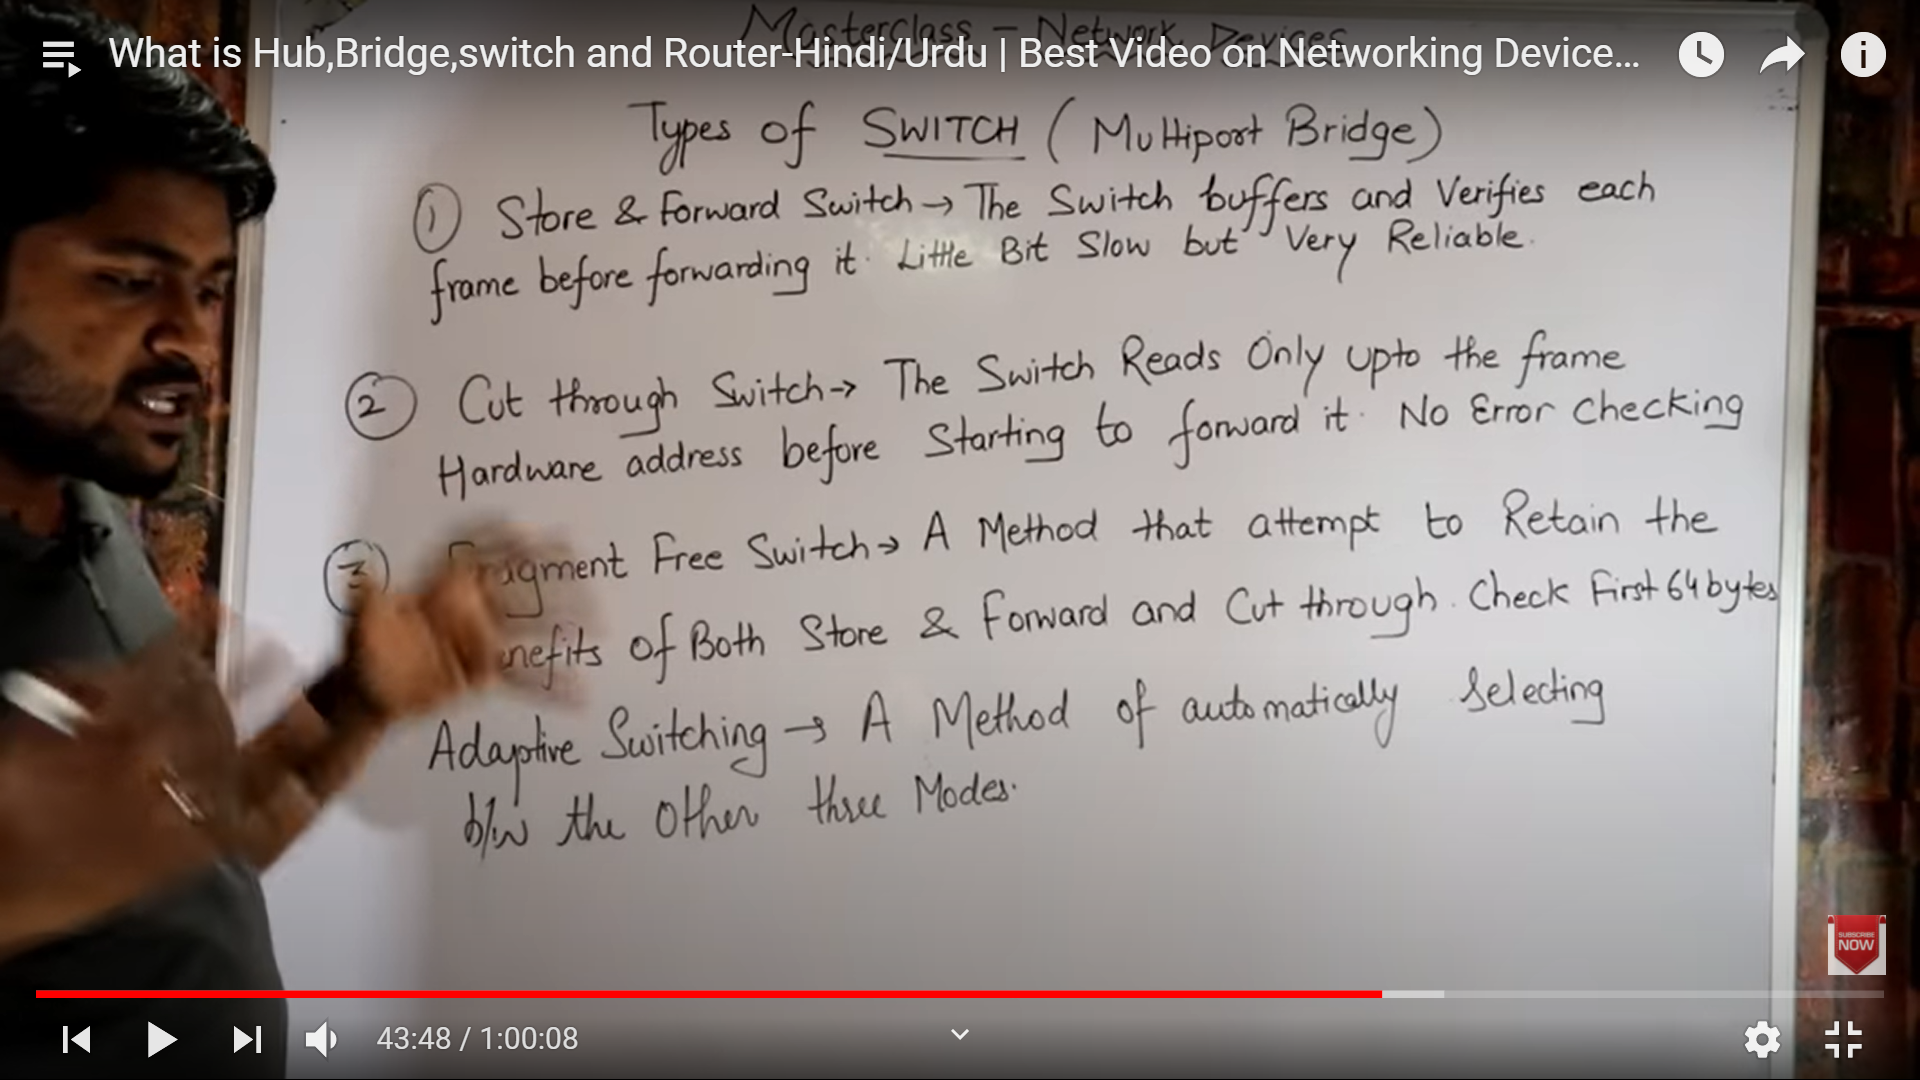 Masterclass - Network Devices
What is Hub,Bridge,switch and Router-Hindi/Urdu | Best Video on Networking Device...
Types of SWITCH (Multiport Bridge)
1 Store & Forward Switch → The Switch buffers and Verifies each
frame before forwarding it. Little Bit Slow but Very Reliable.
2 Cut through Switch → The Switch Reads Only upto the frame
Hardware address before Starting to forward it. No Error Checking
3 Fragment Free Switch → A Method that attempt to Retain the
nefits of Both Store & Forward and Cut through. Check First 64 bytes
Adaptive Switching → A Method of automatically Selecting
b/w the Other three Modes.
SUBSCRIBE
NOW
43:48 / 1:00:08